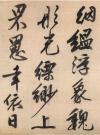 絪縕浮象魏
彤光縹緲上
罘罳幸依日